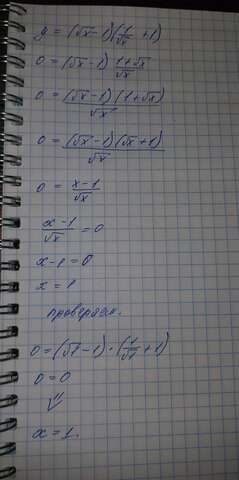 y = (√x-1)(1/√x + 1)
0 = (√x-1) (1+√x)/√x
0 = (√x-1)(1+√x)/√x
0 = (√x-1)(√x+1)/√x
0 = x-1/√x
x-1/√x = 0
x-1 = 0
x = 1
проверяем.
0 = (√1-1)·(1/√1+1)
0 = 0
⇓
x = 1.